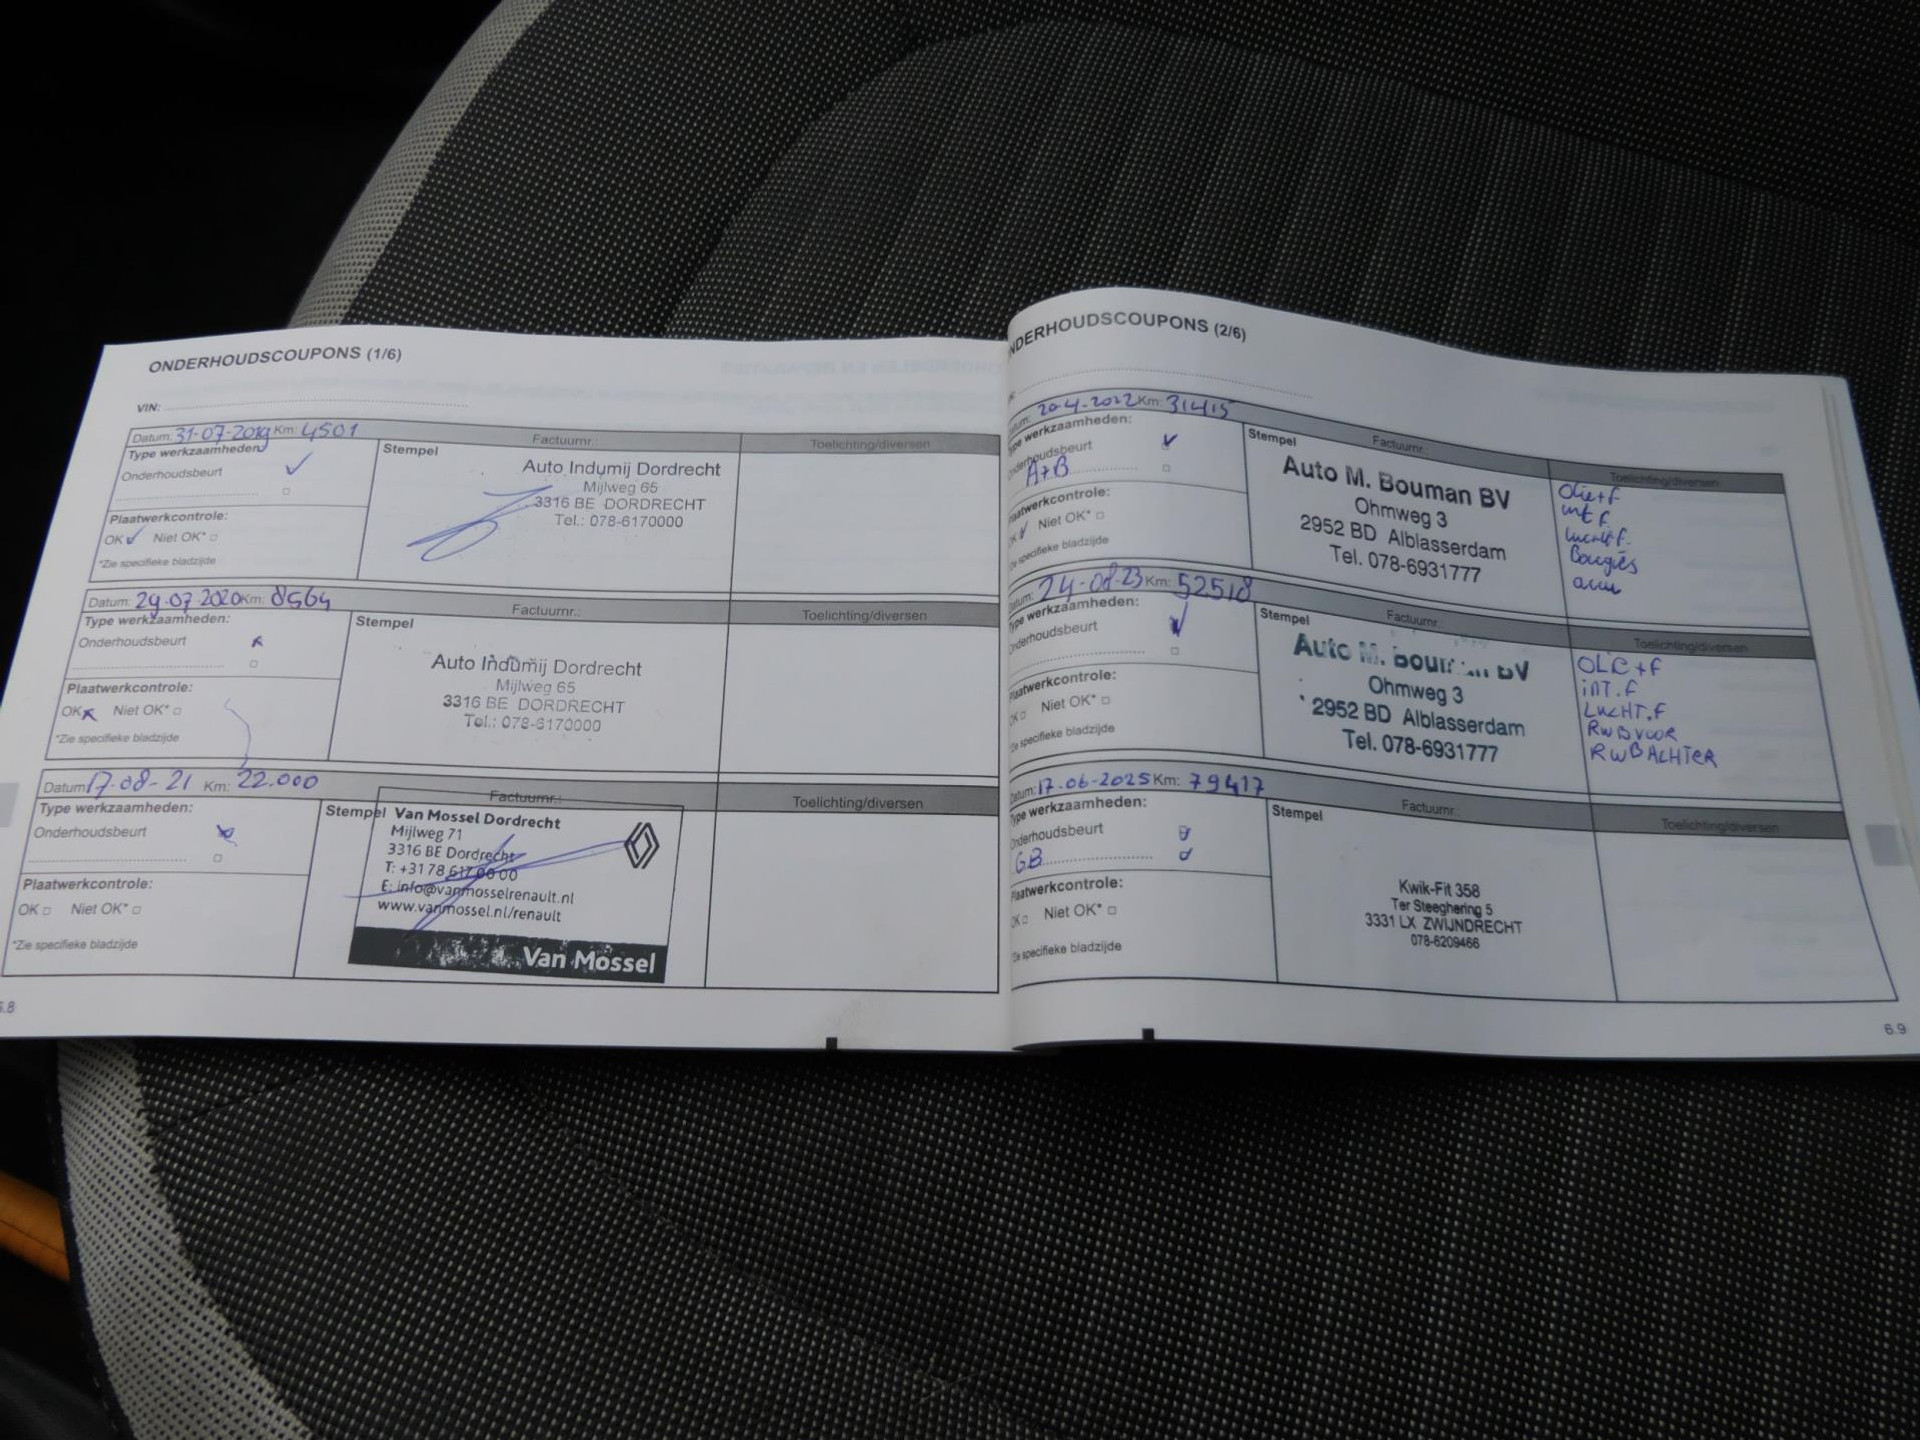 ONDERHOUDSCOUPONS (1/6)
VIN:
Datum: 31-07-2019 Km: 4501
Factuurnr.:
Toelichting/diversen
Type werkzaamheden:
Onderhoudsbeurt
Plaatwerkcontrole:
OK Niet OK*
*Zie specifieke bladzijde
Stempel
Auto Indumij Dordrecht
Mijlweg 65
3316 BE DORDRECHT
Tel.: 078-6170000
Datum: 29-07-2020 Km: 8564
Factuurnr.:
Toelichting/diversen
Type werkzaamheden:
Onderhoudsbeurt
Plaatwerkcontrole:
OK Niet OK*
*Zie specifieke bladzijde
Stempel
Auto Indumij Dordrecht
Mijlweg 65
3316 BE DORDRECHT
Tel.: 078-6170000
Datum 17-08-21 Km: 22.000
Factuurnr.:
Toelichting/diversen
Type werkzaamheden:
Onderhoudsbeurt
Plaatwerkcontrole:
OK Niet OK*
*Zie specifieke bladzijde
Stempel
Van Mossel Dordrecht
Mijlweg 71
3316 BE Dordrecht
T: +31 78 617 00 00
E: info@vanmosselrenault.nl
www.vanmossel.nl/renault
Van Mossel
6.8
ONDERHOUDSCOUPONS (2/6)
Datum: 20-4-2022 Km: 31415
Factuurnr.:
Toelichting/diversen
Type werkzaamheden:
Onderhoudsbeurt
A+B
Plaatwerkcontrole:
OK Niet OK*
*Zie specifieke bladzijde
Stempel
Auto M. Bouman BV
Ohmweg 3
2952 BD Alblasserdam
Tel. 078-6931777
Olie+f
int f.
Lucht f.
Bougies
accu
Datum: 24-08-23 Km: 52518
Factuurnr.:
Toelichting/diversen
Type werkzaamheden:
Onderhoudsbeurt
Plaatwerkcontrole:
OK Niet OK*
*Zie specifieke bladzijde
Stempel
Auto M. Bouman BV
Ohmweg 3
2952 BD Alblasserdam
Tel. 078-6931777
OLIE+F
iNT.F
LUCHT.F
RWB VOOR
RWB ACHTER
Datum: 17-06-2025 Km: 79417
Factuurnr.:
Toelichting/diversen
Type werkzaamheden:
Onderhoudsbeurt
GB
Plaatwerkcontrole:
OK Niet OK*
*Zie specifieke bladzijde
Stempel
Kwik-Fit 358
Ter Steeghering 5
3331 LX ZWIJNDRECHT
078-6209466
6.9